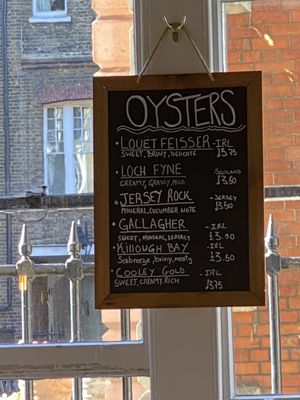 OYSTERS
LOUET FEISSER -IRL
SWEET, BRINY, DELICATE £3.75
LOCH FYNE SCOTLAND
CREAMY, GRASSY, MILD £3.50
JERSEY ROCK -JERSEY
MINERAL, CUCUMBER NOTE £3.50
GALLAGHER -IRL
SWEET, MINERAL, SEASALT £3.50
KILLOUGH BAY -IRL
Seabreeze/briny, meaty £3.50
COOLEY GOLD -IRL
SWEET, CREAMY, RICH £3.75